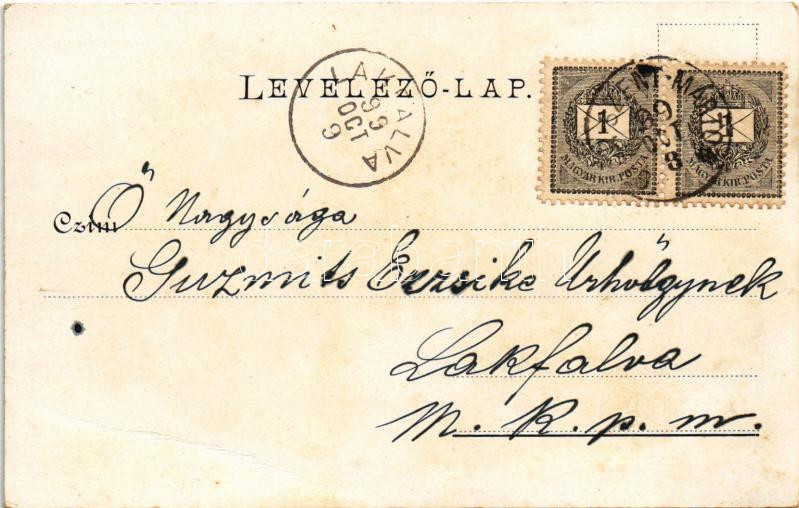 LEVELEZŐ-LAP.
LAKFALVA
99
OCT
9
99
OCT
8
1
MAGYAR KIR. POSTA
1
MAGYAR KIR. POSTA
Czím Ő Nagysága
Guzmits Erzsike Urhölgynek
Lakfalva
M. K. p. m.